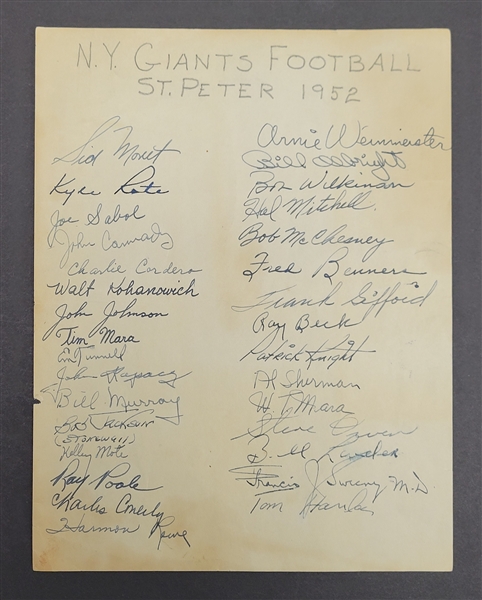 N.Y. GIANTS FOOTBALL
ST. PETER 1952
Sid Moret
Kyle Rote
Joe Sabol
John Cannady
Charlie Cordero
Walt Kohanowich
John Johnson
Tim Mara
Em Tunnell
John Rapacz
Bill Murray
Bob Jackson
(STONEWALL)
Kelley Mote
Ray Poole
Charles Conerly
Harmon Rowe
Arnie Weinmeister
Bill Albright
Bob Wilkinson
Hal Mitchell
Bob McChesney
Fred Benners
Frank Gifford
Ray Beck
Patrick Knight
Al Sherman
W. T. Mara
Steve Owen
Bill
Francis J Sweeny M.D.
Tom Landry